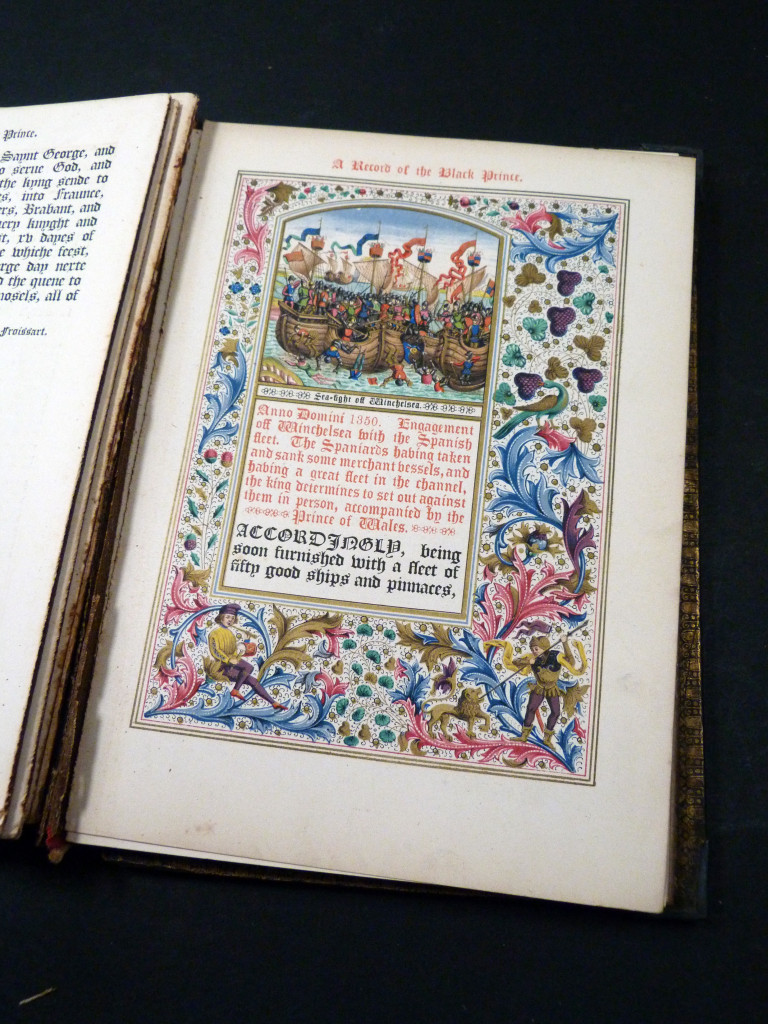 Prince.
Saynt George, and
serue God, and
the kyng sende to
into Fraunce,
Brabant, and
knyght and
xv dayes of
whiche feest,
day nexte
the quene to
all of
Froissart.
A Record of the Black Prince.
Sea-fight off Winchelsea.
Anno Domini 1350. Engagement
off Winchelsea with the Spanish
fleet. The Spaniards having taken
and sank some merchant vessels, and
having a great fleet in the channel,
the king determines to set out against
them in person, accompanied by the
Prince of Wales.
ACCORDINGLY, being
soon furnished with a fleet of
fifty good ships and pinnaces,